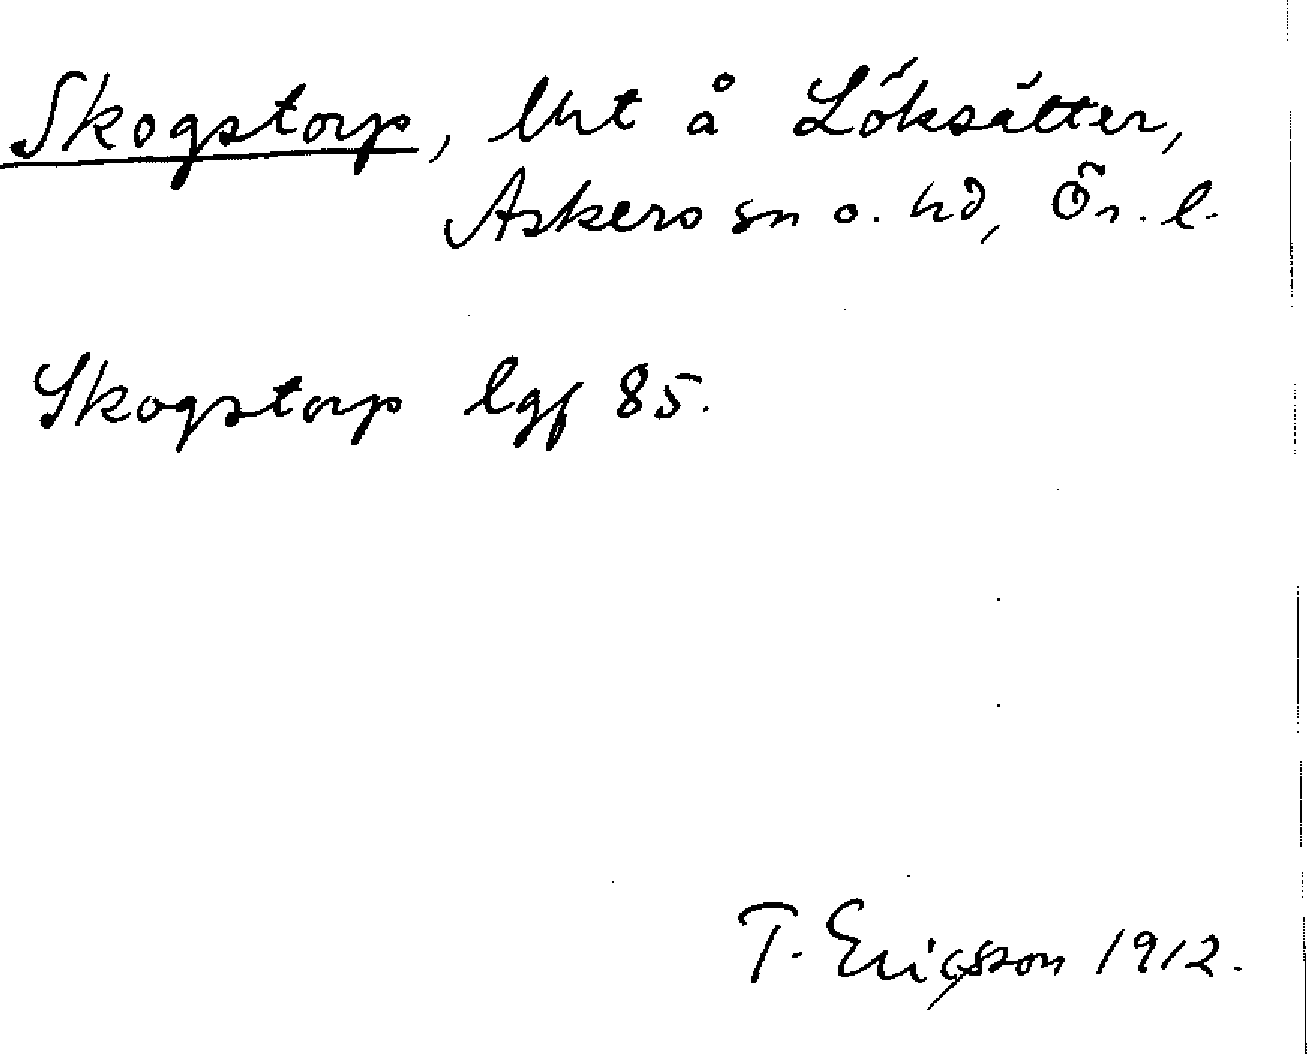 Skogstorp, lht å Löksätter,
Askers sn o. hd, Ör. l.
Skogstorp lgf 85.
T. Ericsson 1912.